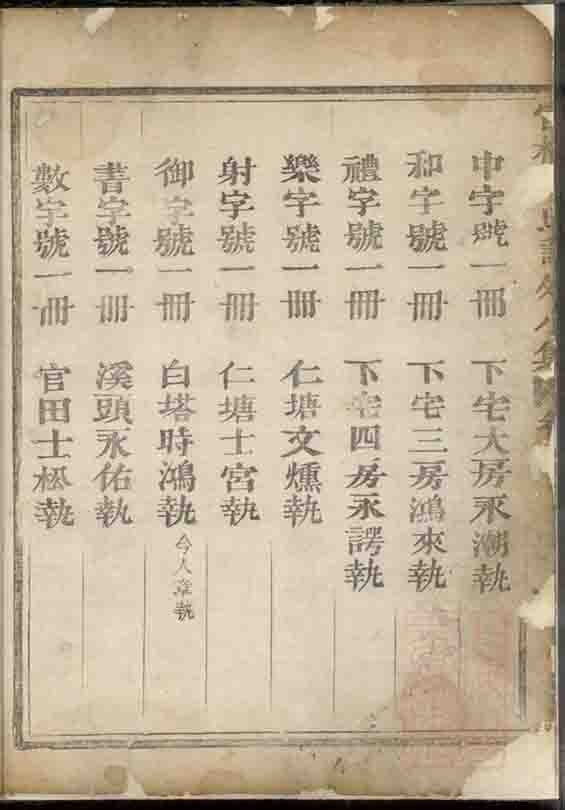 中字號一冊　下宅大房永潮執
和字號一冊　下宅三房鴻來執
禮字號一冊　下宅四房永諤執
樂字號一冊　仁塘文燻執
射字號一冊　仁塘士宮執
御字號一冊　白塔時鴻執　今人章執
書字號一冊　溪頭永佑執
數字號一冊　官田士松執